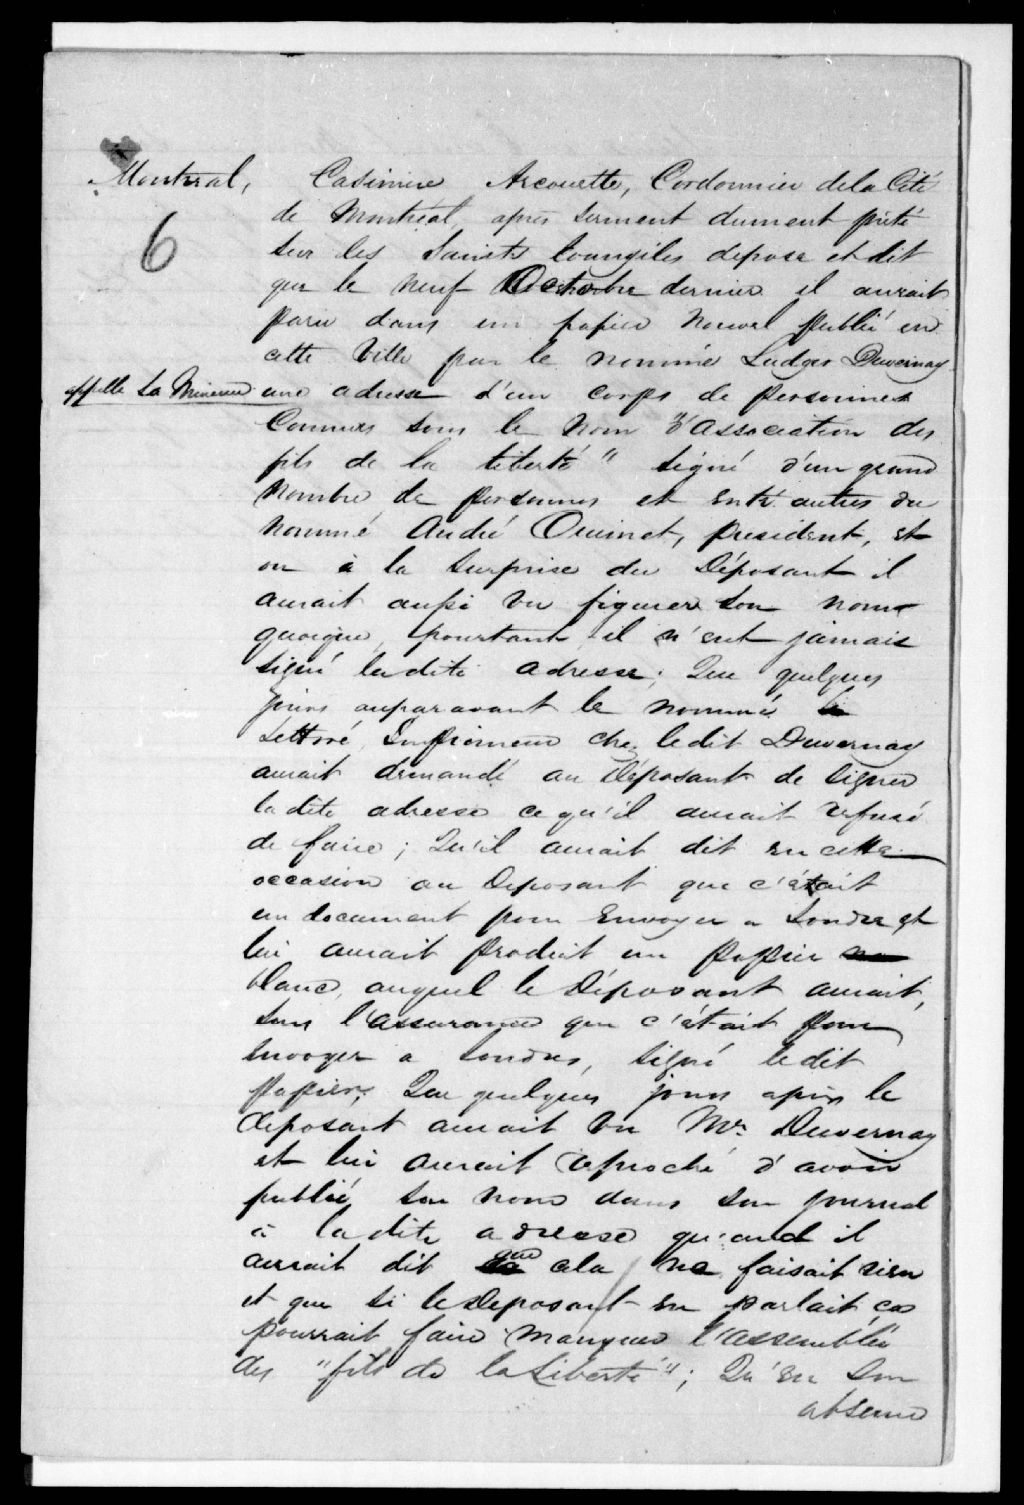 Montreal, Casimire Arcouette, Cordonnier de la Cité
6
de Montréal, après serment dument prêté
sur les Saints Evangiles depose et dit
que le neuf Octobre dernier il aurait
paru dans un papier nouvel publié en
cette Ville par le nommé Ludger Duvernay
appellé La Minerve une adresse d'un corps de personnes
Connues sous le nom "d'Association des
fils de la liberté" signé d'un grand
nombre de personnes et entr'autres du
nommé André Ouimet, president, et
ou à la surprise du Déposant il
aurait aussi vu figurer son nom
quoique pourtant il n'eut jamais
signé ladite adresse; Que quelques
jours auparavant le nommé
Lettoré, Imprimeur chez ledit Duvernay
aurait demandé au Déposant de signer
la dite adresse ce qu'il aurait refusé
de faire; Qu'il aurait dit en cette
occasion au Deposant que c'était
un document pour Envoyer a Londre et
lui aurait produit un papier
blanc, auquel le Déposant aurait,
sous l'assurance que c'était pour
envoyer a Londres, signé ledit
papier; Que quelques jours après le
Deposant aurait vu Mr. Duvernay
et lui aurait reproché d'avoir
publié son nom dans son journal
à la dite adresse quand il
aurait dit que cela ne faisait rien
et que si le Deposant en parlait ça
pourrait faire manquer l'assemblée
des "fils de la Liberté"; Qu'en son
absence